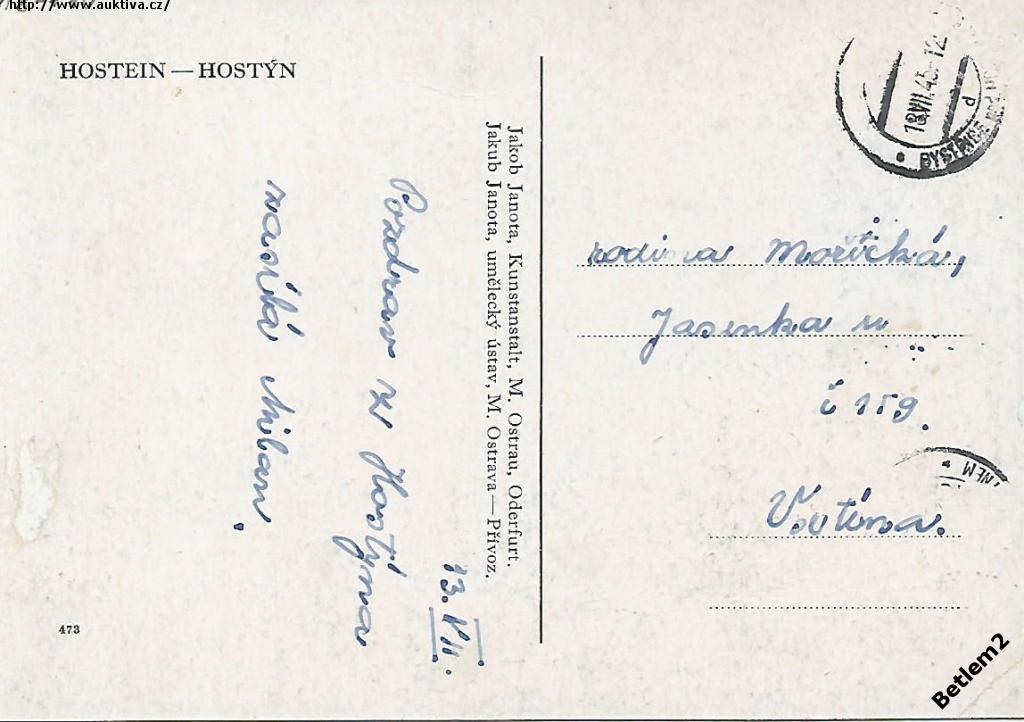 http://www.auktiva.cz/
HOSTEIN — HOSTÝN
Jakob Janota, Kunstanstalt, M. Ostrau, Oderfurt.
Jakub Janota, umělecký ústav, M. Ostrava—Přívoz.
13. VII.
Pozdrav z Hostýna
zasílá Milan.
473
18.VII.45-12
BYSTŘICE
rodina Mořická,
Jasenka
č 159.
Vsetína.
NEM
Betlem2